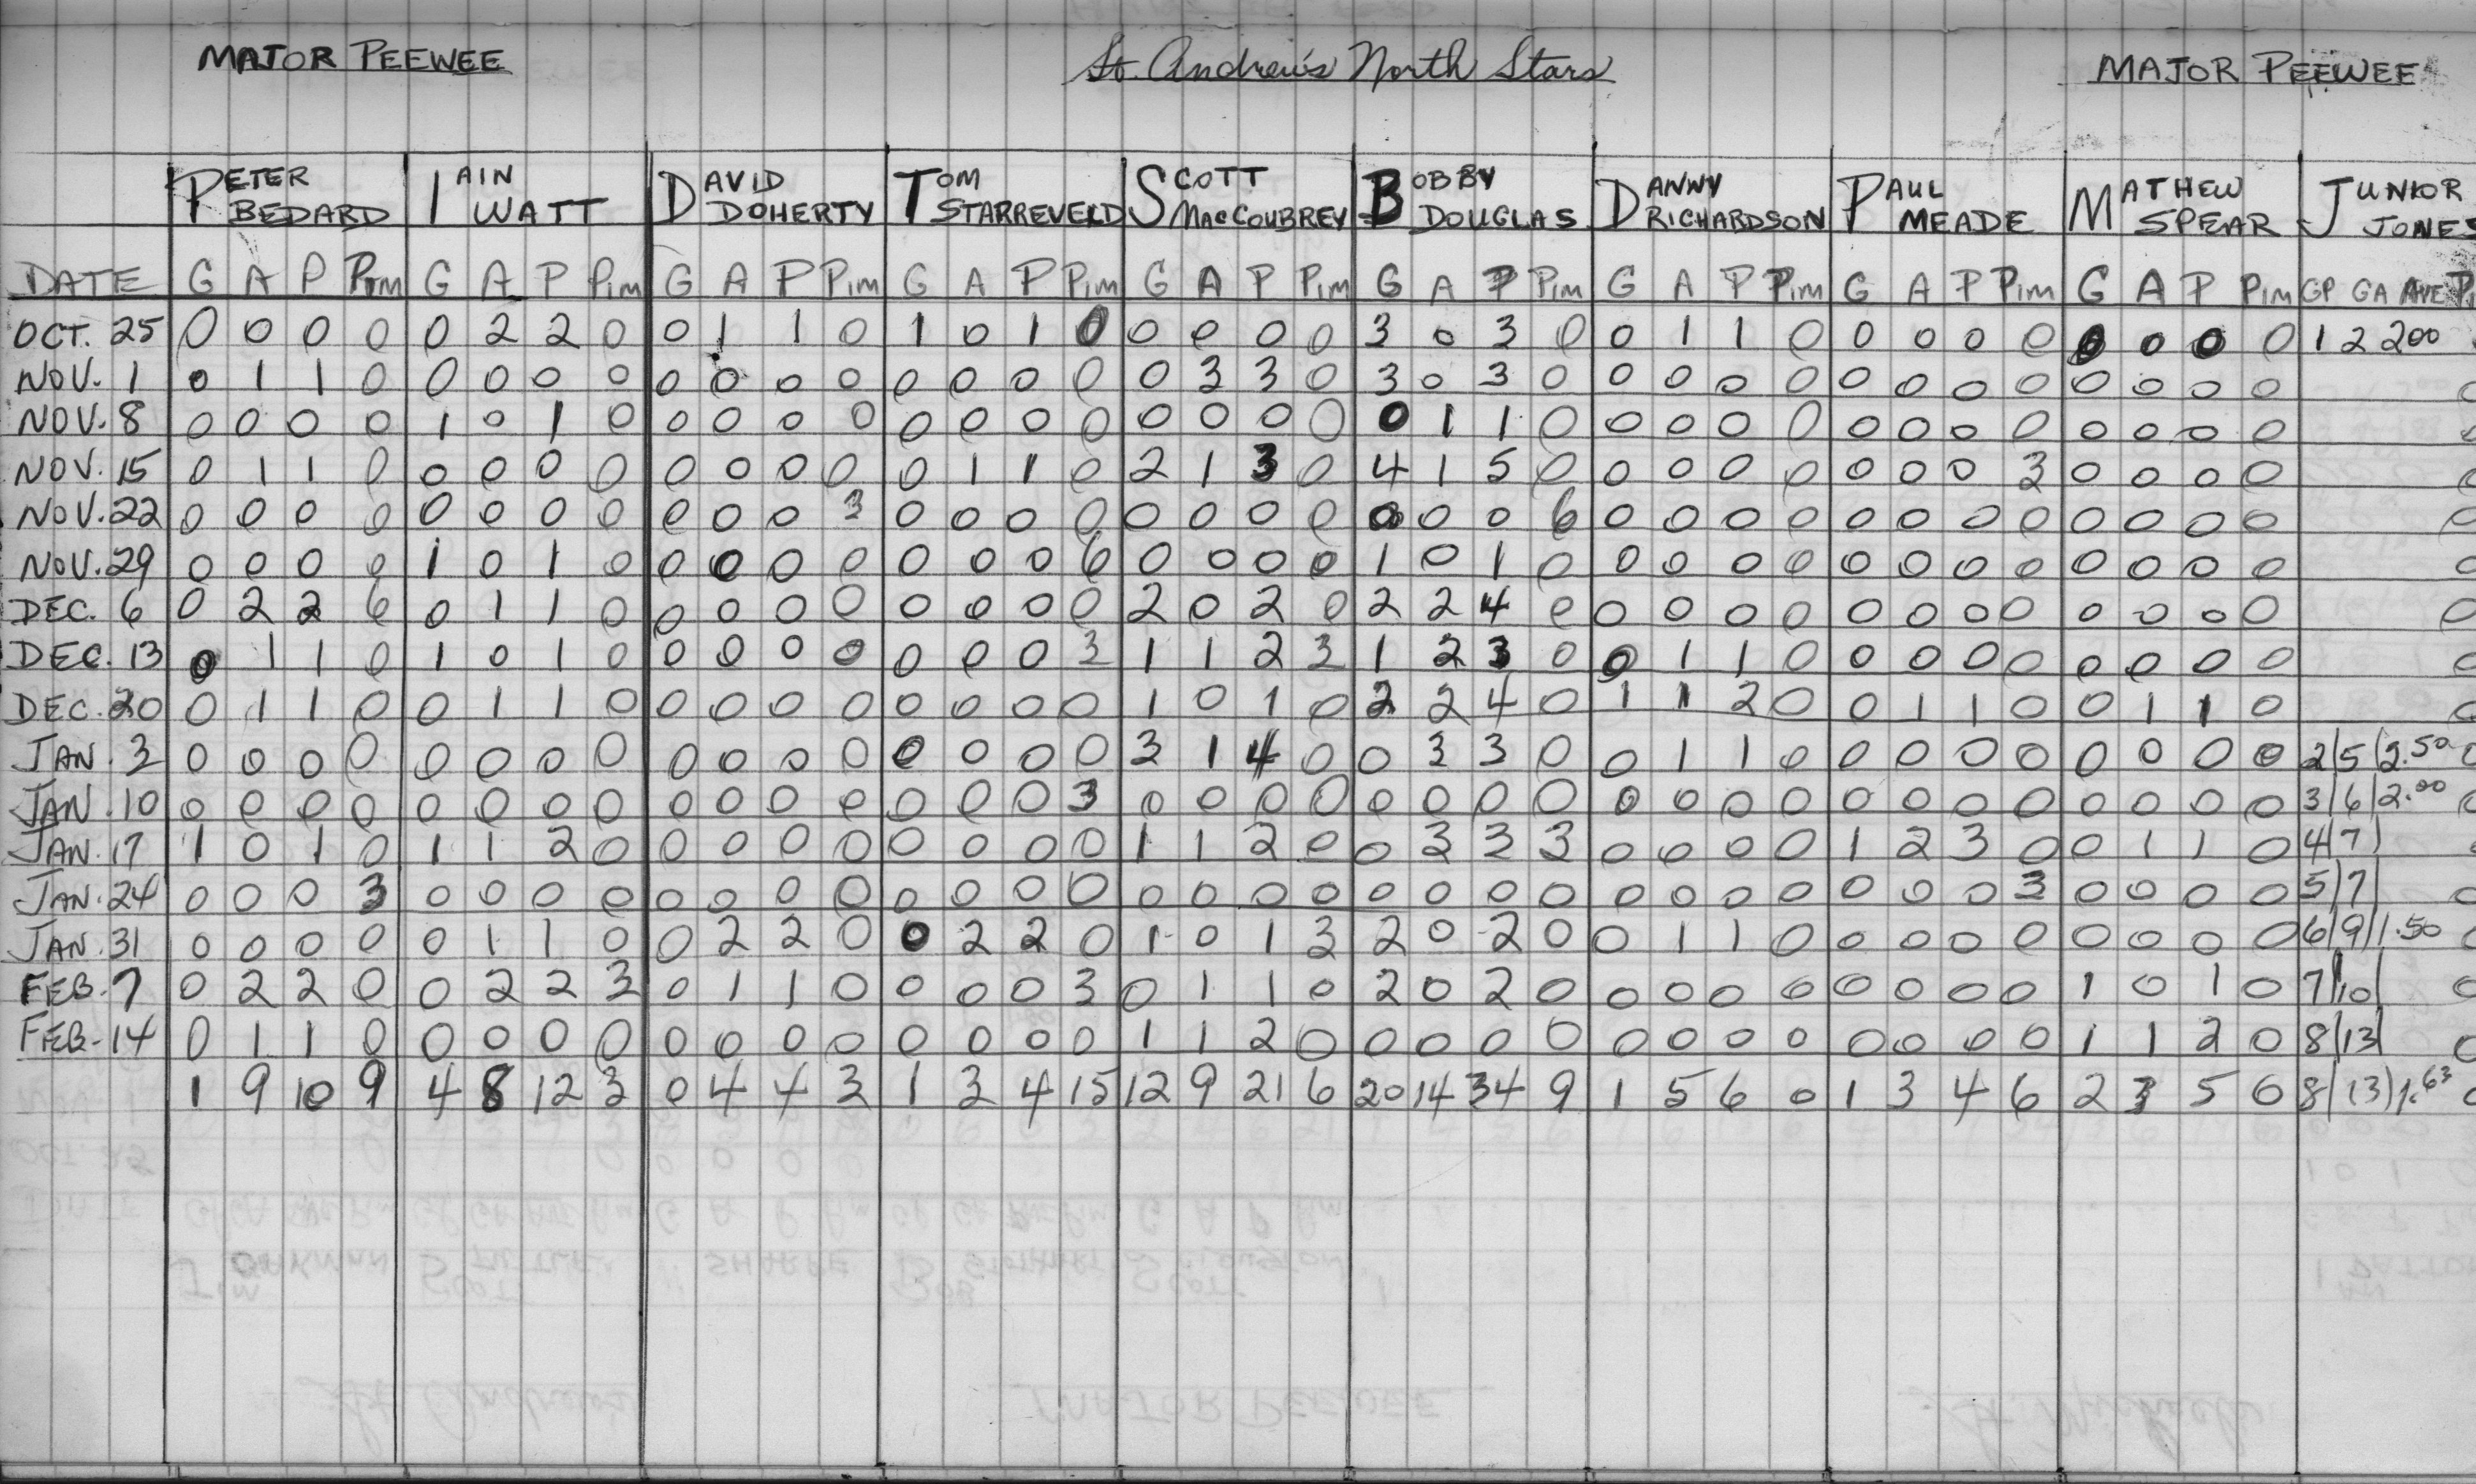 MAJOR PEEWEE St. Andrew's North Stars MAJOR PEEWEE
PETER BEDARD IAIN WATT DAVID DOHERTY TOM STARREVELD SCOTT MACCOUBREY BOBBY DOUGLAS DANNY RICHARDSON PAUL MEADE MATHEW SPEAR JUNIOR JONES
DATE G A P Pim G A P Pim G A P Pim G A P Pim G A P Pim G A P Pim G A P Pim G A P Pim G A P Pim GP GA AVE
OCT. 25 0 0 0 0 0 2 2 0 0 1 1 0 1 0 1 0 0 0 0 0 3 0 3 0 0 1 1 0 0 0 0 0 0 0 0 0 1 2 200
NOV. 1 0 1 1 0 0 0 0 0 0 0 0 0 0 0 0 0 0 3 3 0 3 0 3 0 0 0 0 0 0 0 0 0 0 0 0 0 0
NOV. 8 0 0 0 0 1 0 1 0 0 0 0 0 0 0 0 0 0 0 0 0 0 1 1 0 0 0 0 0 0 0 0 0 0 0 0 0 0
NOV. 15 0 1 1 0 0 0 0 0 0 0 0 0 0 1 1 0 2 1 3 0 4 1 5 0 0 0 0 0 0 0 0 3 0 0 0 0 0
NOV. 22 0 0 0 0 0 0 0 0 0 0 0 3 0 0 0 0 0 0 0 0 0 0 0 6 0 0 0 0 0 0 0 0 0 0 0 0 0
NOV. 29 0 0 0 0 1 0 1 0 0 0 0 0 0 0 0 6 0 0 0 0 1 0 1 0 0 0 0 0 0 0 0 0 0 0 0 0 0
DEC. 6 0 2 2 6 0 1 1 0 0 0 0 0 0 0 0 0 2 0 2 0 2 2 4 0 0 0 0 0 0 0 0 0 0 0 0 0 0
DEC. 13 0 1 1 0 1 0 1 0 0 0 0 0 0 0 0 3 1 1 2 3 1 2 3 0 0 1 1 0 0 0 0 0 0 0 0 0 0
DEC. 20 0 1 1 0 0 1 1 0 0 0 0 0 0 0 0 0 1 0 1 0 2 2 4 0 1 1 2 0 0 1 1 0 0 1 1 0 0
JAN. 3 0 0 0 0 0 0 0 0 0 0 0 0 0 0 0 0 3 1 4 0 0 3 3 0 0 1 1 0 0 0 0 0 0 0 0 0 2/5/2.50 0
JAN. 10 0 0 0 0 0 0 0 0 0 0 0 0 0 0 0 3 0 0 0 0 0 0 0 0 0 0 0 0 0 0 0 0 0 0 0 0 3/6/2.00 0
JAN. 17 1 0 1 0 1 1 2 0 0 0 0 0 0 0 0 0 1 1 2 0 0 3 3 3 0 0 0 0 1 2 3 0 0 1 1 0 4/7/ 0
JAN. 24 0 0 0 3 0 0 0 0 0 0 0 0 0 0 0 0 0 0 0 0 0 0 0 0 0 0 0 0 0 0 0 3 0 0 0 0 5/7/ 0
JAN. 31 0 0 0 0 0 1 1 0 0 2 2 0 0 2 2 0 1 0 1 3 2 0 2 0 0 1 1 0 0 0 0 0 0 0 0 0 6/9/1.50 0
FEB. 7 0 2 2 0 0 2 2 3 0 1 1 0 0 0 0 3 0 1 1 0 2 0 2 0 0 0 0 0 0 0 0 0 1 0 1 0 7/10/ 0
FEB. 14 0 1 1 0 0 0 0 0 0 0 0 0 0 0 0 0 1 1 2 0 0 0 0 0 0 0 0 0 0 0 0 0 1 1 2 0 8/13/ 0
1 9 10 9 4 8 12 3 0 4 4 3 1 3 4 15 12 9 21 6 20 14 34 9 1 5 6 0 1 3 4 6 2 3 5 0 8/13/1.63 0